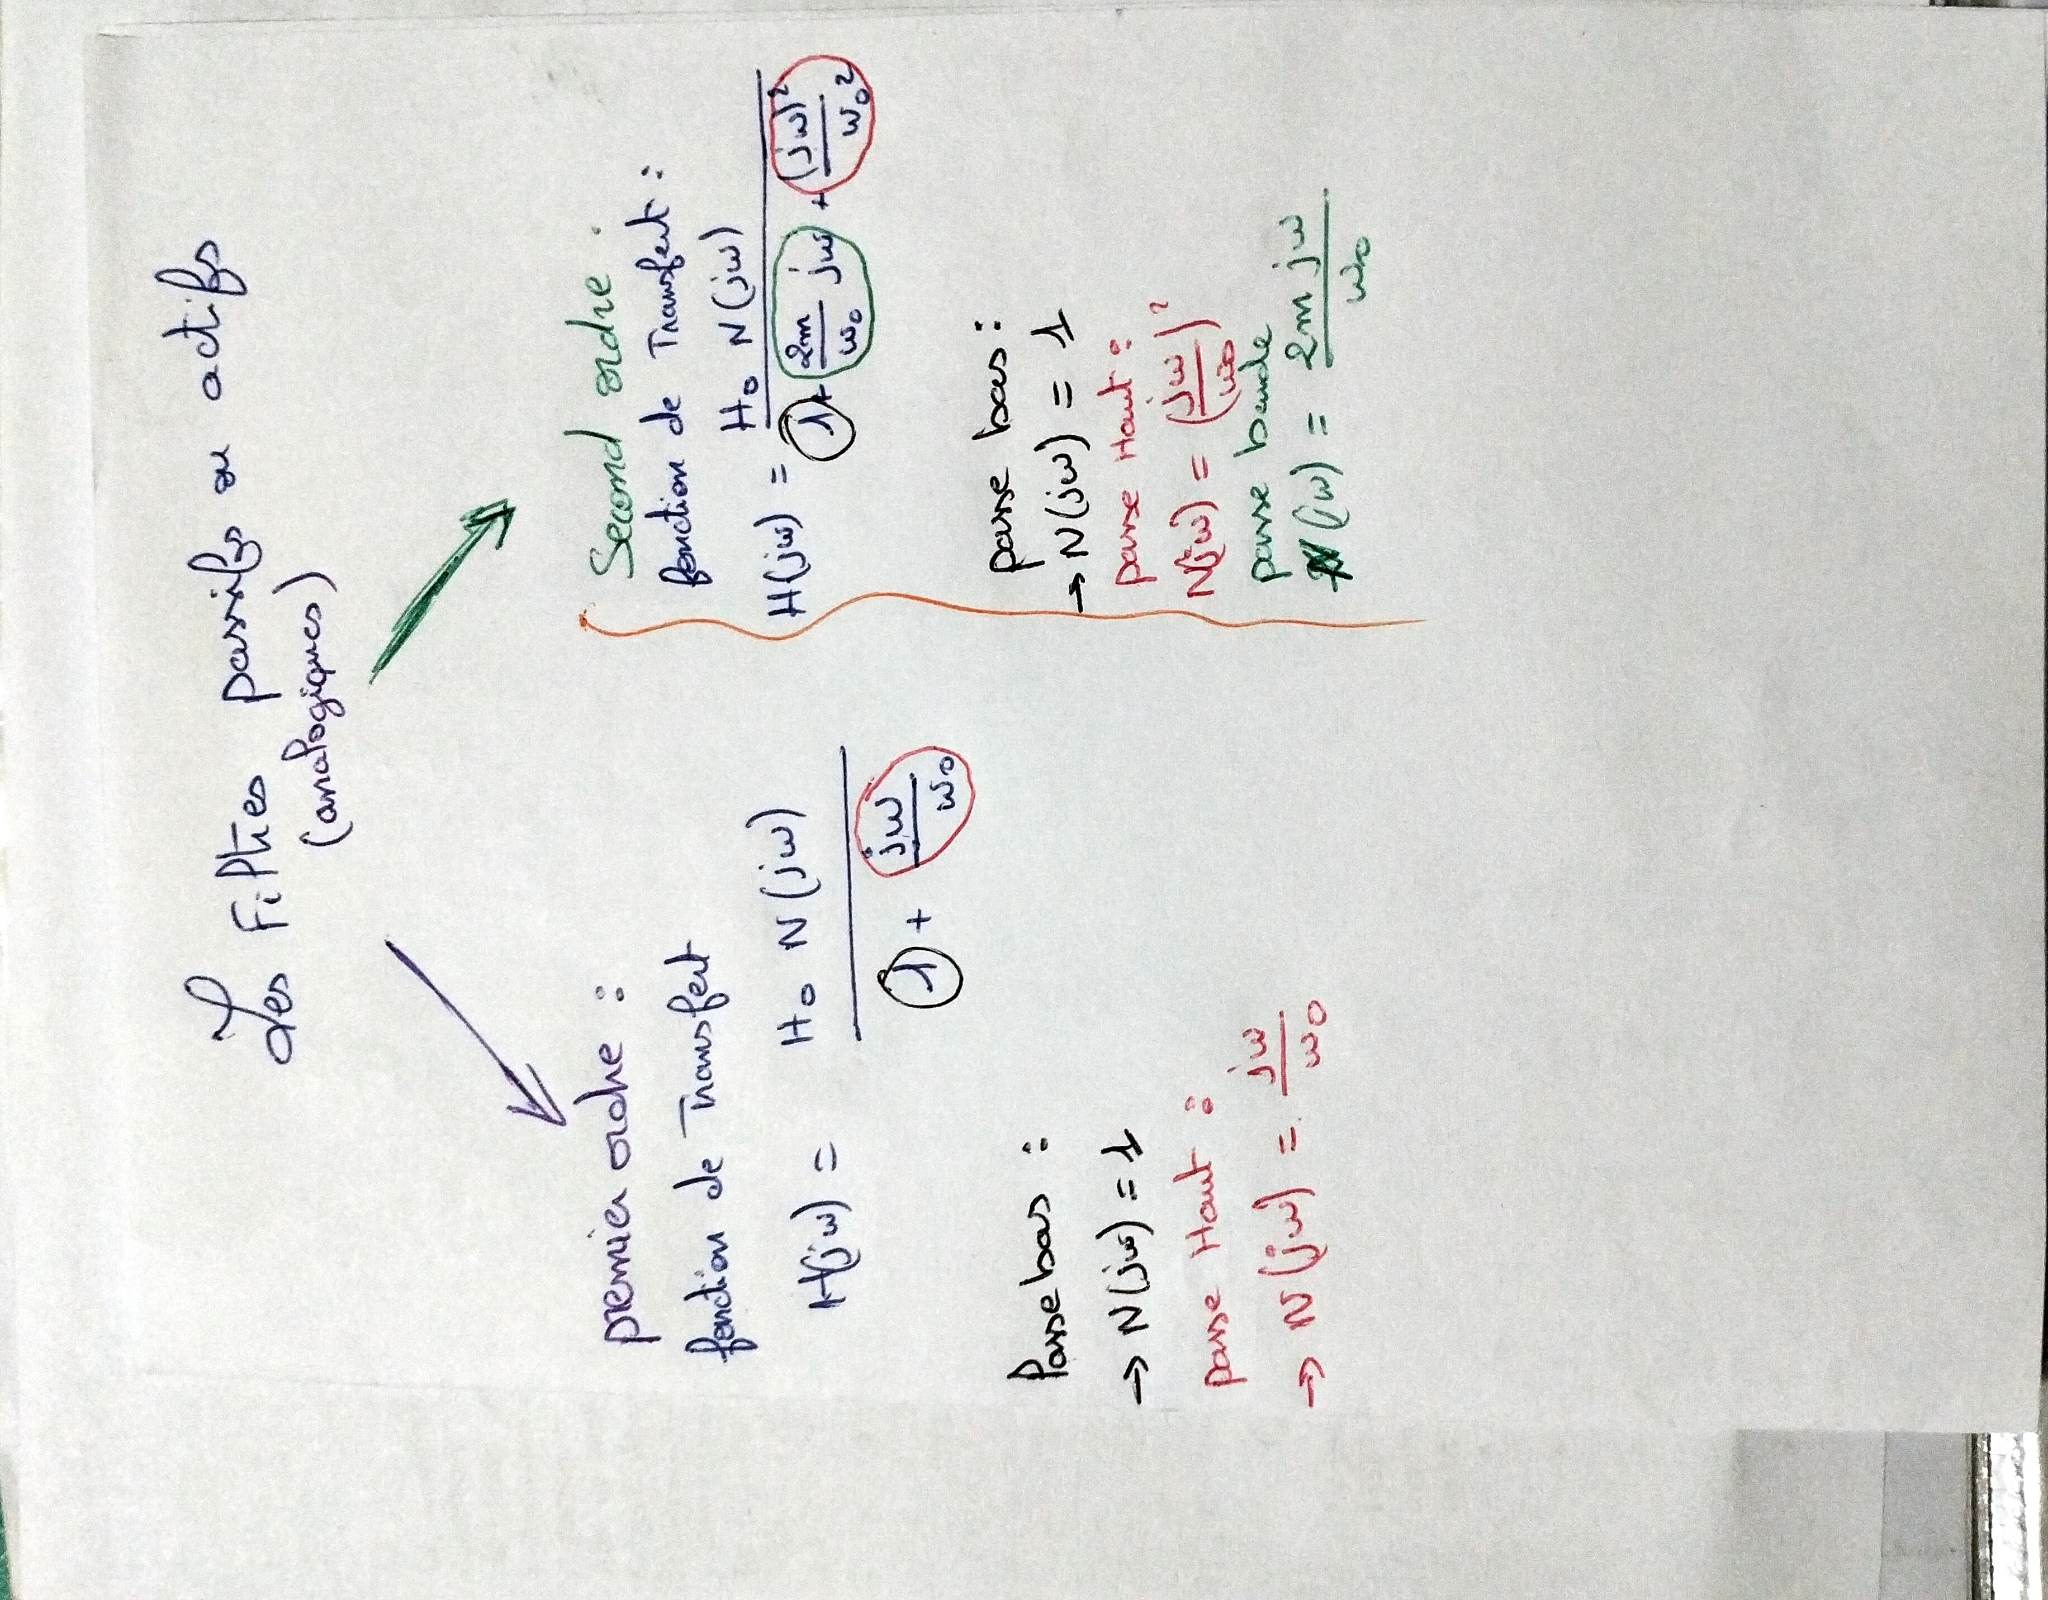 Les Filtres passifs ou actifs
(analogiques)
premier ordre :
fonction de Transfert
H(jω) = H₀ N(jω) / (1 + jω/ω₀)
Passe bas :
→ N(jω) = 1
passe Haut :
→ N(jω) = jω/ω₀
Second ordre .
fonction de Transfert :
H(jω) = H₀ N(jω) / (1 + 2m/ω₀ jω + (jω)²/ω₀²)
passe bas :
→ N(jω) = 1
passe Haut :
N(jω) = (jω/ω₀)²
passe bande
N(jω) = 2m jω/ω₀